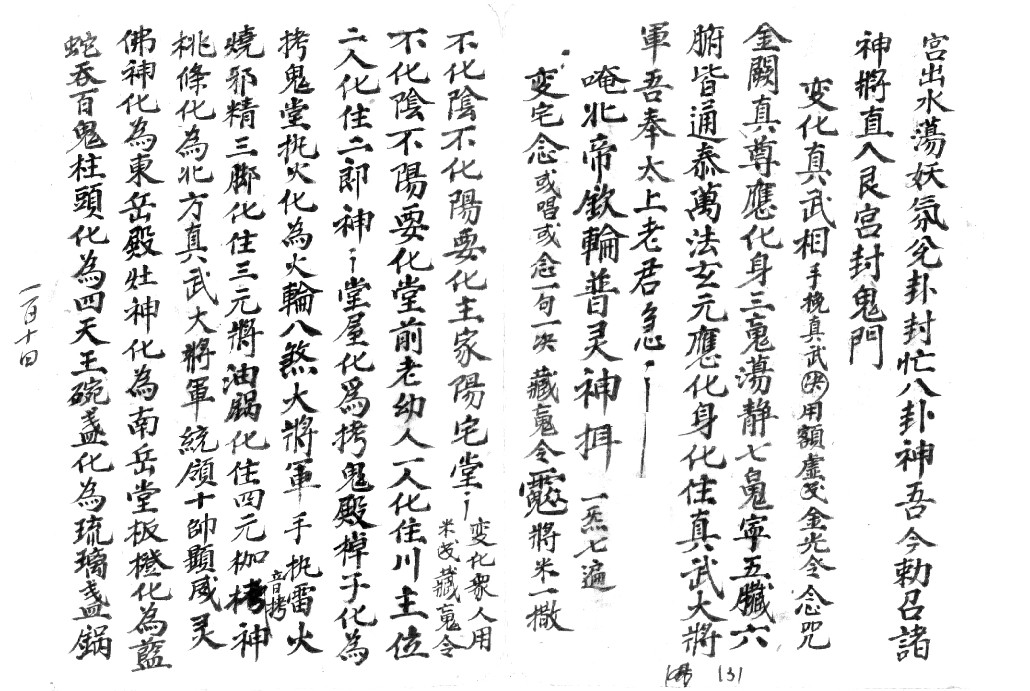 宫出水蕩妖氛兌卦封忙八卦神吾今勅召諸
神將直入艮宫封鬼門
变化真武相手挽真武决用額虚文金光令念咒
金闕真尊應化身三魂蕩靜七魄寧五臟六
腑皆通泰萬法玄元應化身化住真武大將
軍吾奉太上老君急
唵北帝欽輪普灵神揖 一炁七遍
变宅念或唱或念一句一决 藏魂令 將米一撒
不化陰不化陽要化主家陽宅堂 变化眾人用米或藏魂令
不化陰不陽要化堂前老幼人一人化住川主位
二人化住二郎神堂屋化為拷鬼殿棹子化為
拷鬼堂挑火化為火輪八煞大將軍手执雷火
燒邪精三脚化住三元將油鍋化住四元枷拷音拷神
桃條化為北方真武大將軍統領十帥顯威灵
佛神化為東岳殿灶神化為南岳堂板橙化為藍
蛇吞百鬼柱頭化為四天王碗盏化為琉璃盏鍋
一百十四
131